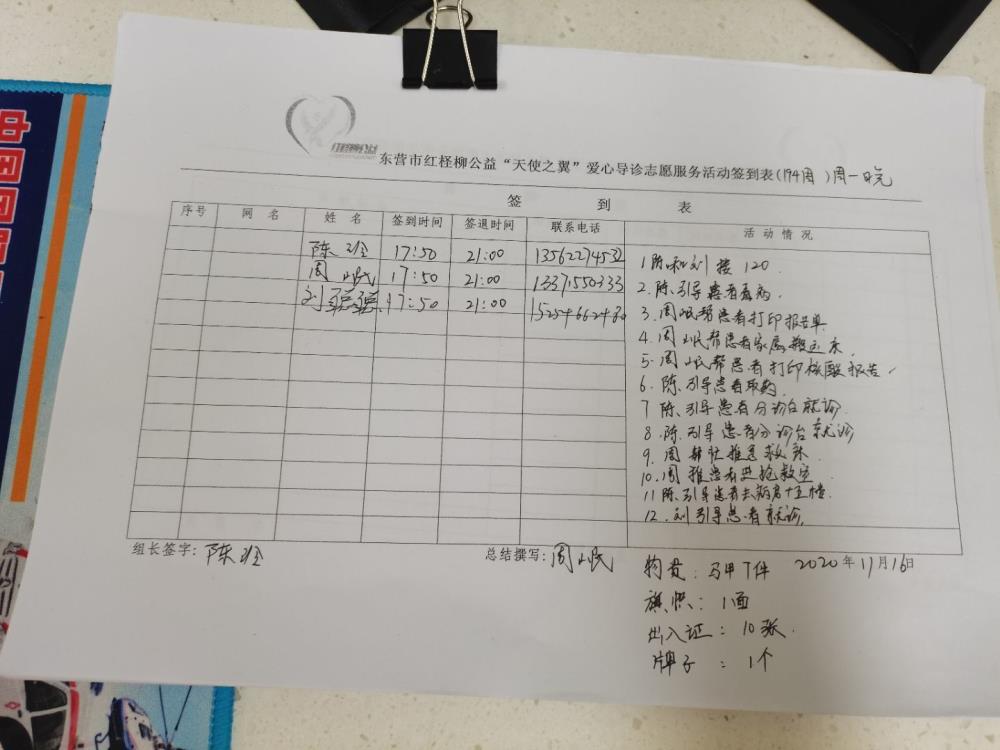 红柽柳公益
东营市红柽柳公益“天使之翼”爱心导诊志愿服务活动签到表(194周)周一晚
签到表
序号 网名 姓名 签到时间 签退时间 联系电话 活动情况
陈 17:50 21:00 13562274532
周 民 17:50 21:00 13371550333
刘 17:50 21:00 15254662480
1 陈和刘接120.
2. 陈.引导患者看病.
3. 周 民帮患者打印报告单
4. 周 民帮患者家属搬运床.
5. 周 民帮患者打印核酸报告.
6. 陈.引导患者取药.
7 陈.引导患者分诊台就诊.
8. 陈.引导患者分诊台就诊
9. 周 推急救床.
10. 周 推患者进抢救室
11 陈.引导患者去病房十五楼.
12. 刘引导患者就诊.
组长签字: 陈 总结撰写: 周 民
物资: 马甲7件 2020年11月16日
旗帜: 1面
出入证: 10张.
牌子: 1个